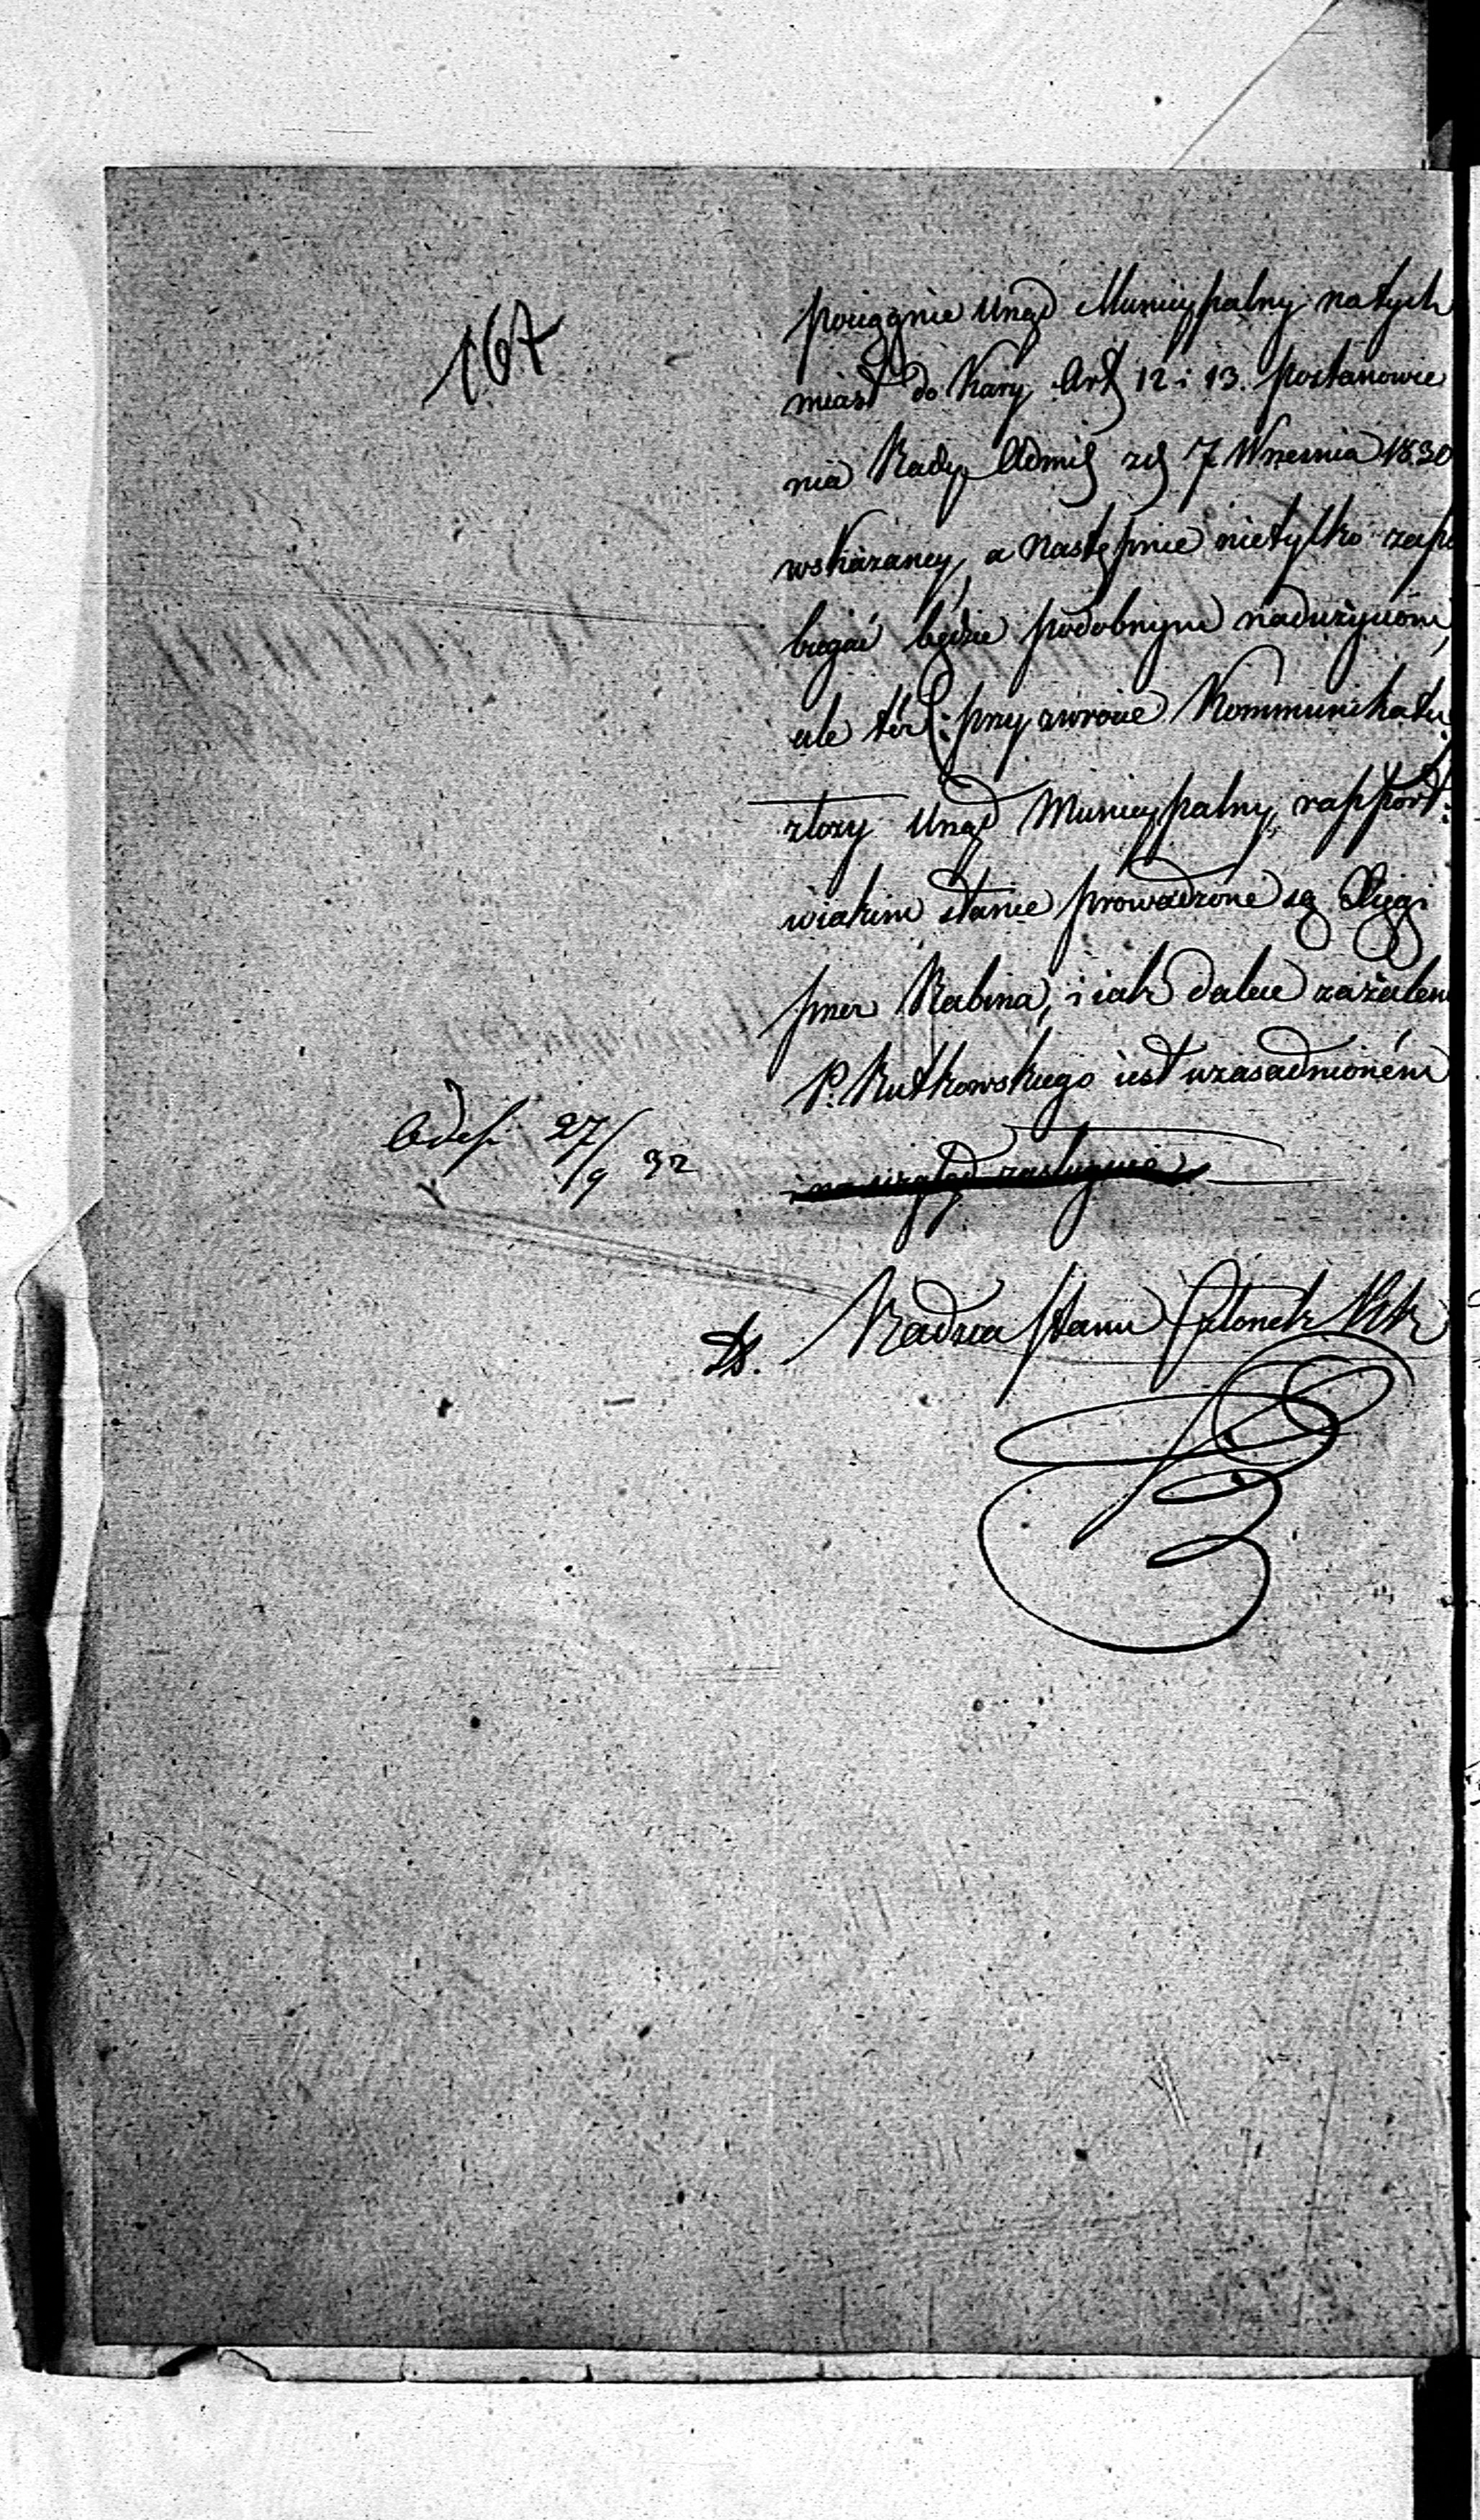 167
pociągnie Urząd Municypalny natych
miast do Kary Art 12 i 13. postanowie
nia Rady Admi zd 7 Wrzesnia 1830
wskazaney, a następnie nietylko zapo
biegać będzie podobnym nadużyciom,
ale téż (: przy zwrocie Kommunikatu :)
złoży Urząd Municypalny, rapport:
wiakim stanie prowadzone są Xięgi
przez Rabina, i iak dalece zażalen
P. Rutkowskiego iest uzasadnioném
i na wzgląd zasługuie
27/9 32
Radzca Stanu Członek